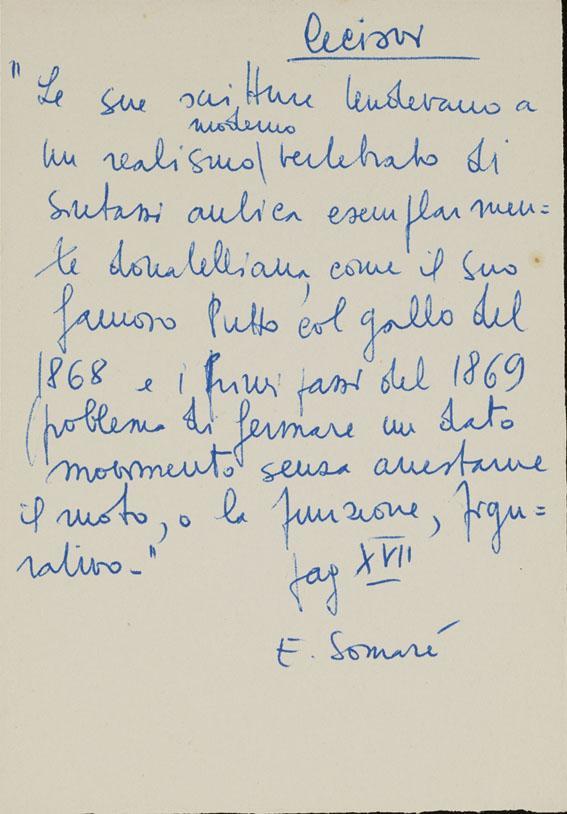 Cecioni
"Le sue sculture tendevano a
moderno
un realismo| vertebrato di
sintassi antica esemplarmen=
te donatelliana, come il suo
famoso Putto col gallo del
1868 e i primi passi del 1869
(problema di fermare un dato
movimento senza arrestarne
il moto, o la funzione, figu=
rativo."
pag XVII
E. Somaré